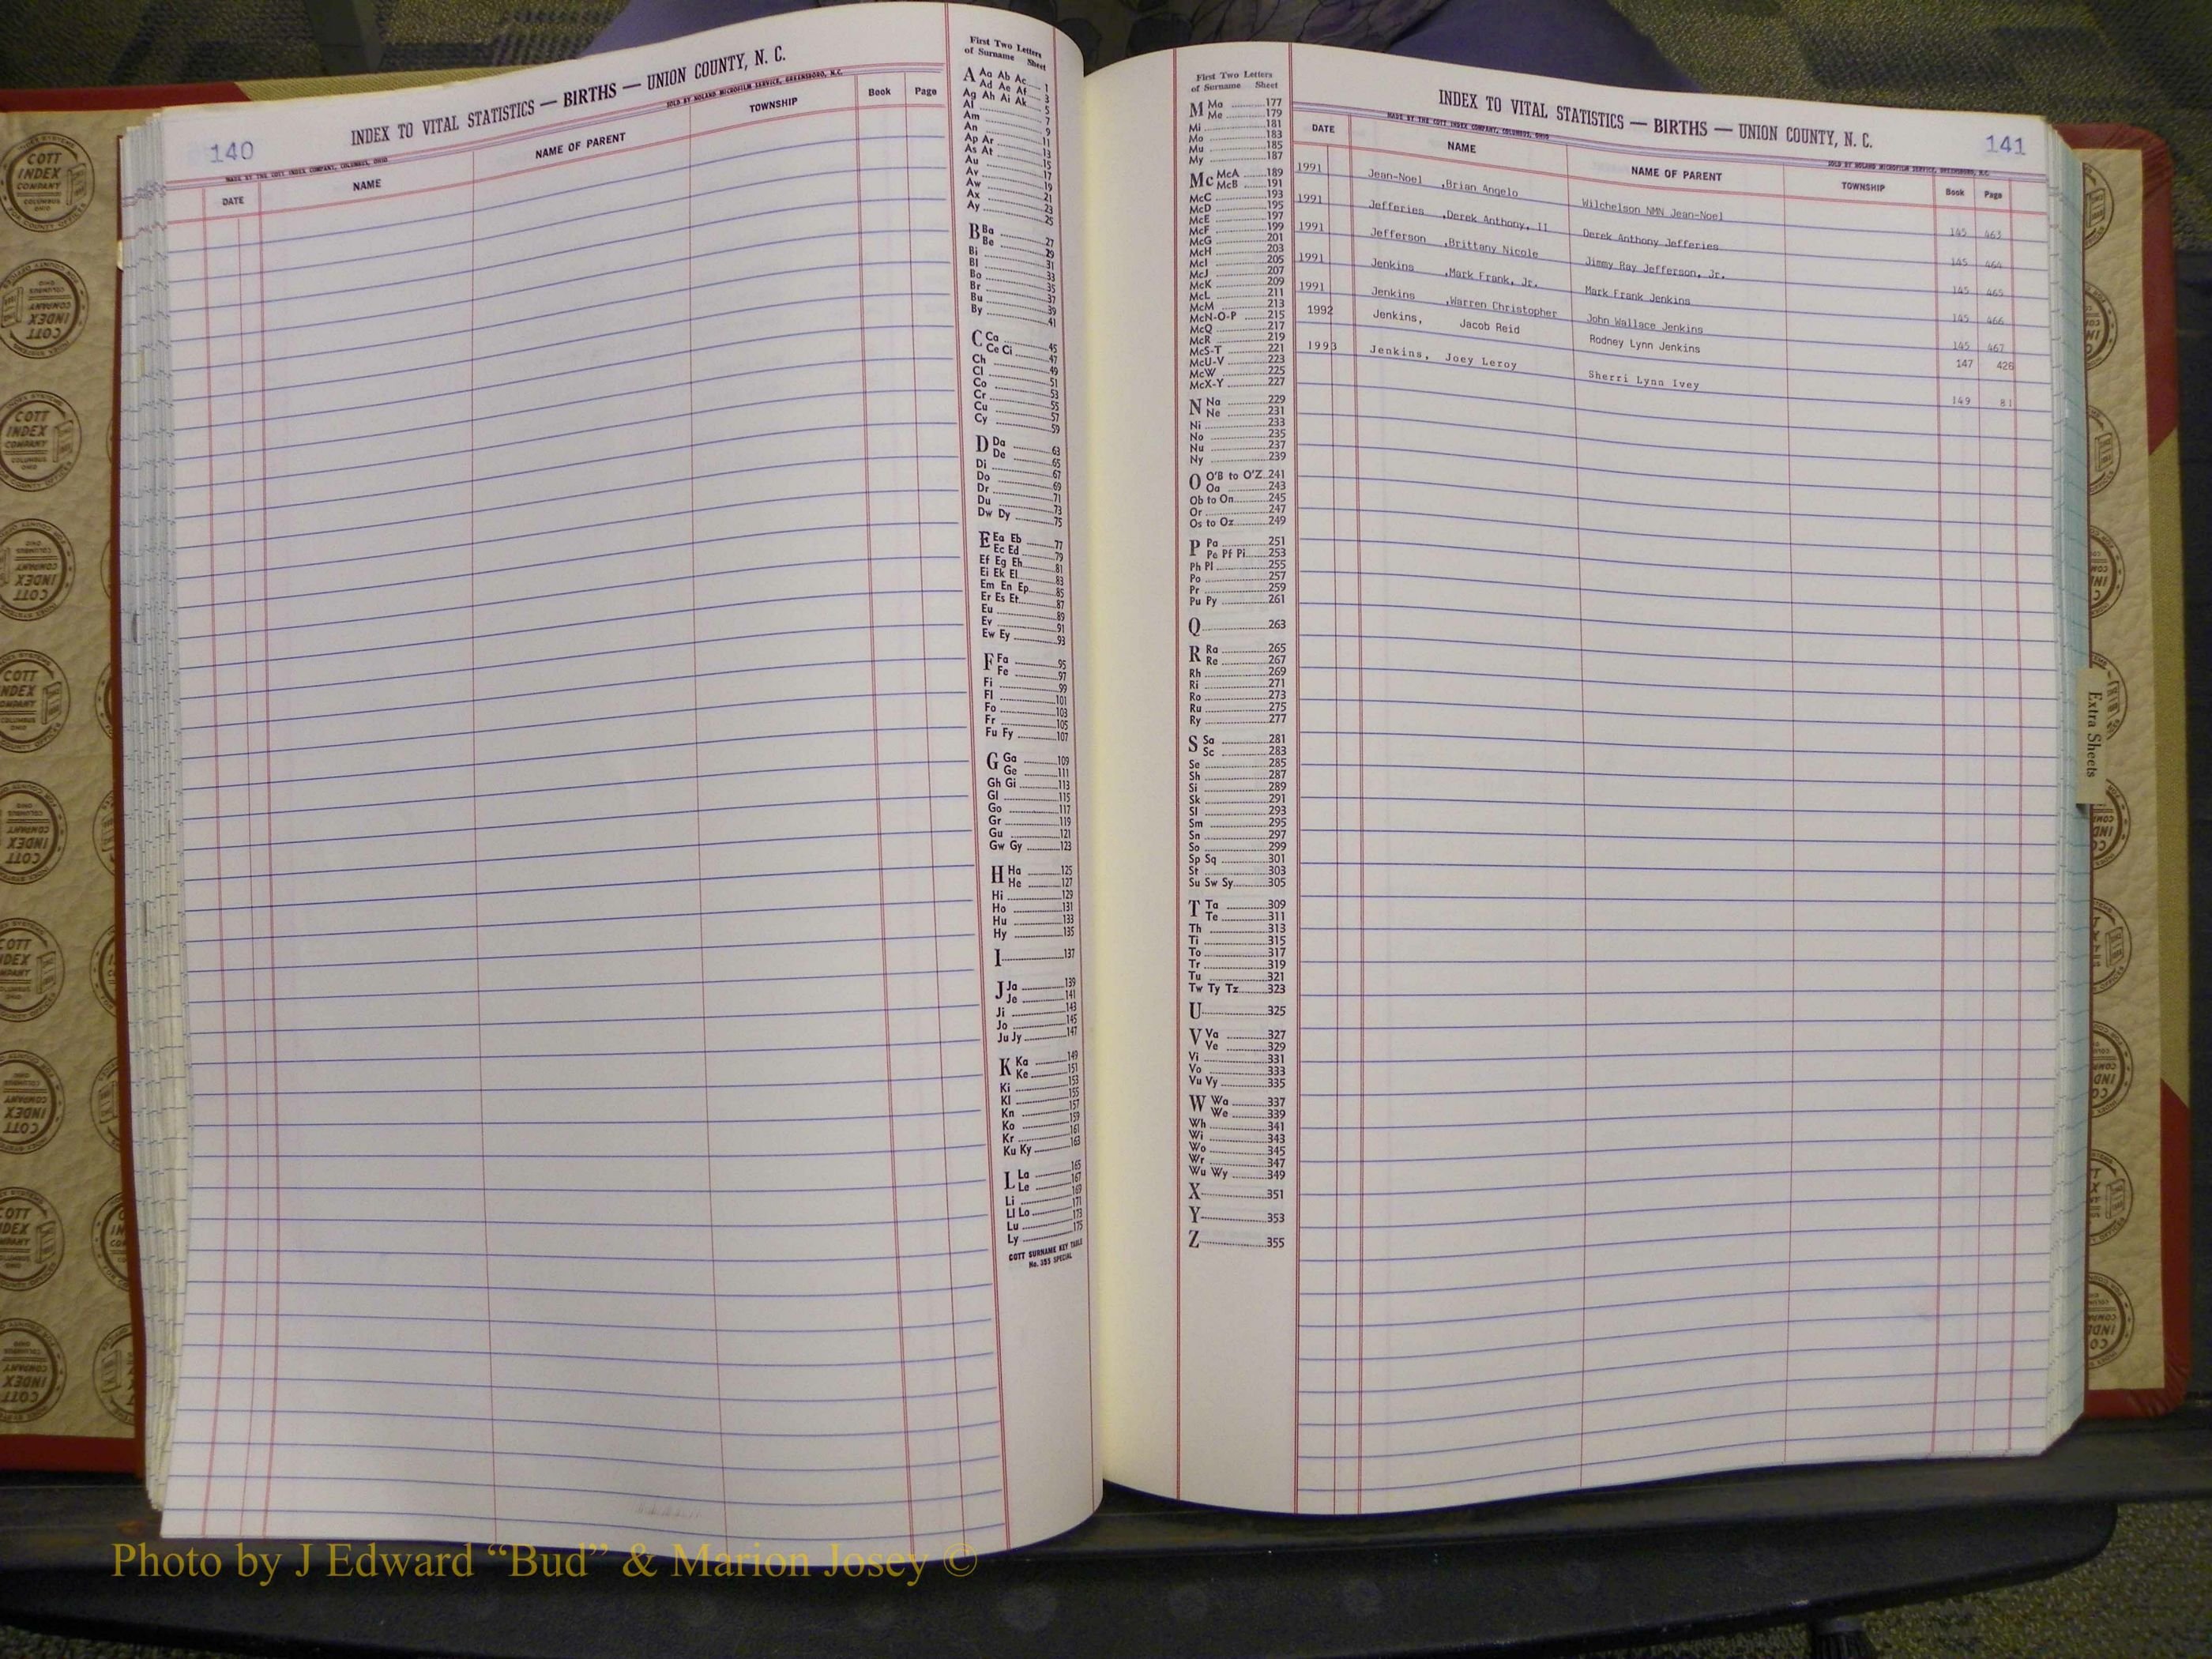 140
INDEX TO VITAL STATISTICS — BIRTHS — UNION COUNTY, N. C.
MADE BY THE COTT INDEX COMPANY, COLUMBUS, OHIO
SOLD BY NOLAND MICROFILM SERVICE, GREENSBORO, N.C.
DATE NAME NAME OF PARENT TOWNSHIP Book Page
First Two Letters
of Surname Sheet
A Aa Ab Ac 1
Ad Ae Af 3
Ag Ah Ai Ak 5
Al 7
Am 9
An 11
Ap Ar 13
As At 15
Au 17
Av 19
Aw 21
Ax 23
Ay 25
B Ba 27
Be 29
Bi 31
Bl 33
Bo 35
Br 37
Bu 39
By 41
C Ca 45
Ce Ci 47
Ch 49
Cl 51
Co 53
Cr 55
Cu 57
Cy 59
D Da 63
De 65
Di 67
Do 69
Dr 71
Du 73
Dw Dy 75
E Ea Eb 77
Ec Ed 79
Ef Eg Eh 81
Ei Ek El 83
Em En Ep 85
Er Es Et 87
Eu 89
Ev 91
Ew Ey 93
F Fa 95
Fe 97
Fi 99
Fl 101
Fo 103
Fr 105
Fu Fy 107
G Ga 109
Ge 111
Gh Gi 113
Gl 115
Go 117
Gr 119
Gu 121
Gw Gy 123
H Ha 125
He 127
Hi 129
Ho 131
Hu 133
Hy 135
I 137
J Ja 139
Je 141
Ji 143
Jo 145
Ju Jy 147
K Ka 149
Ke 151
Ki 153
Kl 155
Kn 157
Ko 159
Kr 161
Ku Ky 163
L La 165
Le 167
Li 169
Ll Lo 171
Lu 173
Ly 175
COTT SURNAME KEY TABLE
No. 355 SPECIAL
First Two Letters
of Surname Sheet
M Ma 177
Me 179
Mi 181
Mo 183
Mu 185
My 187
Mc McA 189
McB 191
McC 193
McD 195
McE 197
McF 199
McG 201
McH 203
McI 205
McJ 207
McK 209
McL 211
McM 213
McN-O-P 215
McQ 217
McR 219
McS-T 221
McU-V 223
McW 225
McX-Y 227
N Na 229
Ne 231
Ni 233
No 235
Nu 237
Ny 239
O O'B to O'Z 241
Oa 243
Ob to On 245
Or 247
Os to Oz 249
P Pa 251
Pe Pf Pi 253
Ph Pl 255
Po 257
Pr 259
Pu Py 261
Q 263
R Ra 265
Re 267
Rh 269
Ri 271
Ro 273
Ru 275
Ry 277
S Sa 281
Sc 283
Se 285
Sh 287
Si 289
Sk 291
Sl 293
Sm 295
Sn 297
So 299
Sp Sq 301
St 303
Su Sw Sy 305
T Ta 309
Te 311
Th 313
Ti 315
To 317
Tr 319
Tu 321
Tw Ty Tz 323
U 325
V Va 327
Ve 329
Vi 331
Vo 333
Vu Vy 335
W Wa 337
We 339
Wh 341
Wi 343
Wo 345
Wr 347
Wu Wy 349
X 351
Y 353
Z 355
INDEX TO VITAL STATISTICS — BIRTHS — UNION COUNTY, N. C.
141
MADE BY THE COTT INDEX COMPANY, COLUMBUS, OHIO
SOLD BY NOLAND MICROFILM SERVICE, GREENSBORO, N.C.
DATE NAME NAME OF PARENT TOWNSHIP Book Page
1991 Jean-Noel ,Brian Angelo Wilchelson NMN Jean-Noel 145 463
1991 Jefferies ,Derek Anthony, II Derek Anthony Jefferies 145 464
1991 Jefferson ,Brittany Nicole Jimmy Ray Jefferson, Jr. 145 465
1991 Jenkins ,Mark Frank, Jr. Mark Frank Jenkins 145 466
1991 Jenkins ,Warren Christopher John Wallace Jenkins 145 467
1992 Jenkins, Jacob Reid Rodney Lynn Jenkins 147 426
1993 Jenkins, Joey Leroy Sherri Lynn Ivey 149 81
Extra Sheets
COTT
INDEX
COMPANY
COLUMBUS
OHIO
Photo by J Edward “Bud” & Marion Josey ©